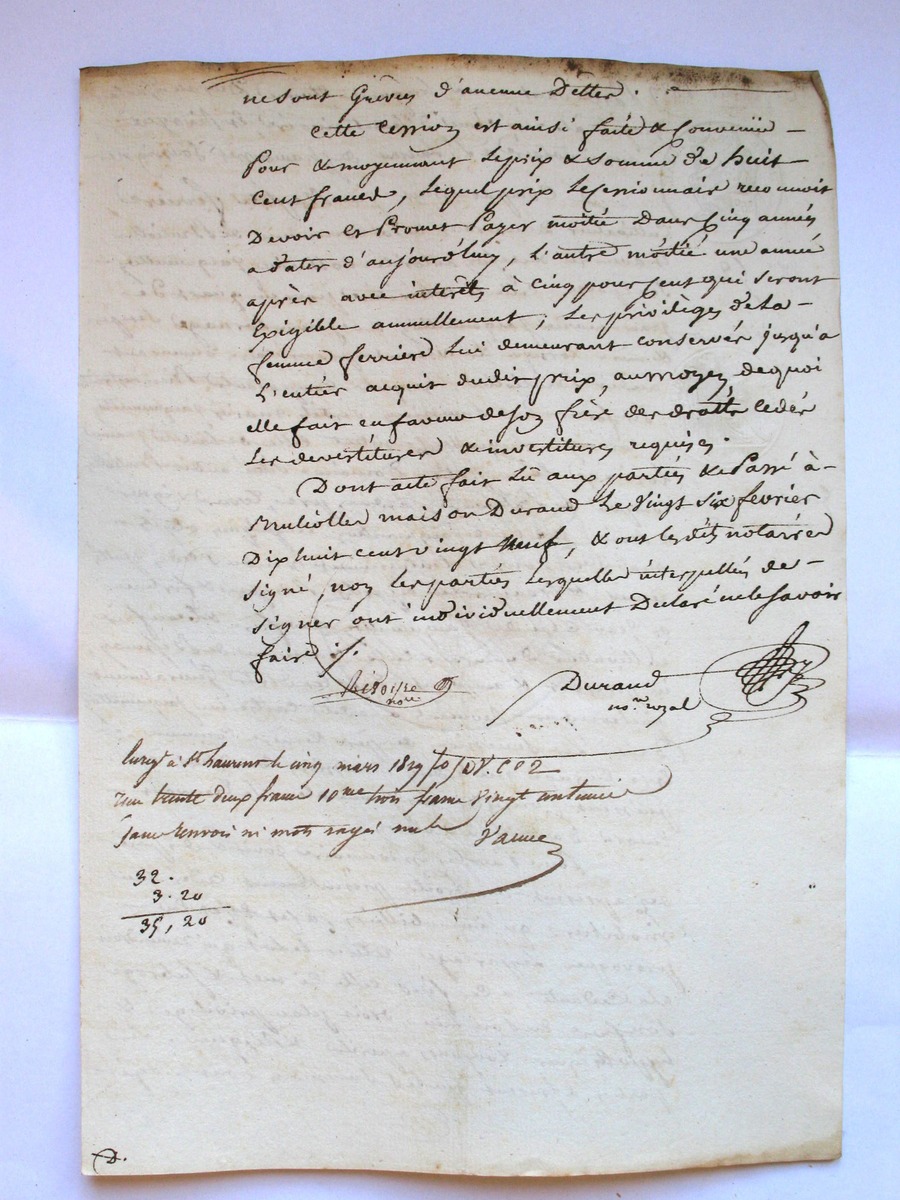 ne sont Grévés d'aucune Dettes.
Cette Cession est ainsi faite & Convenüe
Pour & moyennant Le prix & Somme de huit
Cent francs, Lequel prix Le Cessionnaire reconnoit
Devoir Et Promet Payer moitié Dans Cinq années
a dater d'aujourd'huy, L'autre moitié une année
après avec intérêts à Cinq pour Cent qui seront
Exigible annuellement, Les privilèges de La
femme ferriere Lui demeurant conservés jusqu'a
L'entier acquit dudit prix, au moyen de quoi
elle fait en faveur de Son frère des droits Cédés
Les devestitures & investitures requises.
Dont acte fait Lû aux parties & Passé à
maison Durand Le Vingt Six fevrier
Dix huit Cent vingt Neuf, & ont les dits notaires
signé, non Les parties Lesquelles interpellés de
signer ont individuellement Déclaré ne le Savoir
faire ./.
Durand
no.re royal
Enreg.é à St Laurent le cinq mars 1829 fo 58 V. C 2
reçu trente deux francs 10.me trois francs Vingt centimes
sans renvois ni mots rayés nuls
32.
3.20
35,20
D.